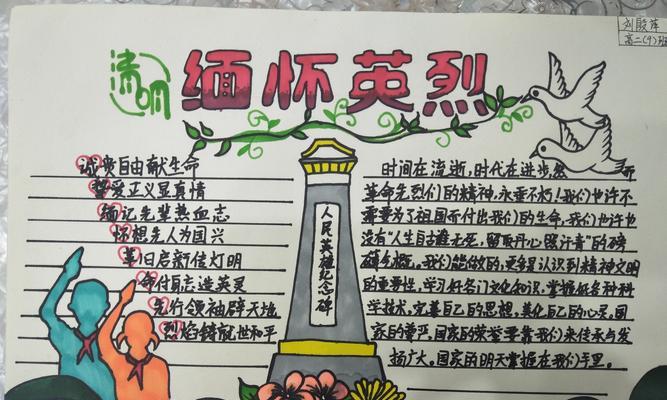 刘殿萍
高二(9)班
清明
缅怀英烈
诚贵自由献生命
挚爱正义显真情
缅记先辈热血志
怀想先人为国兴
革旧启新佳灯明
命付同志造英灵
先行领袖辟天地
烈焰铸就世和平
人民英雄纪念碑
时间在流逝,时代在进步然而
革命先烈们的精神,永垂不朽!我们也许不
需要为了祖国而付出我们的生命,我们也许也
没有"人生自古谁无死,留取丹心照汗青"的磅
礴气概。我们能做的,更多是认识到精神文明
的重要性,学习好各门文化知识,掌握好各种科
学技术,完善自己的思想,美化自己的心灵。国
家的尊严,国家的荣誉要靠我们来传承与发
扬广大。国家的明天掌握在我们手里。